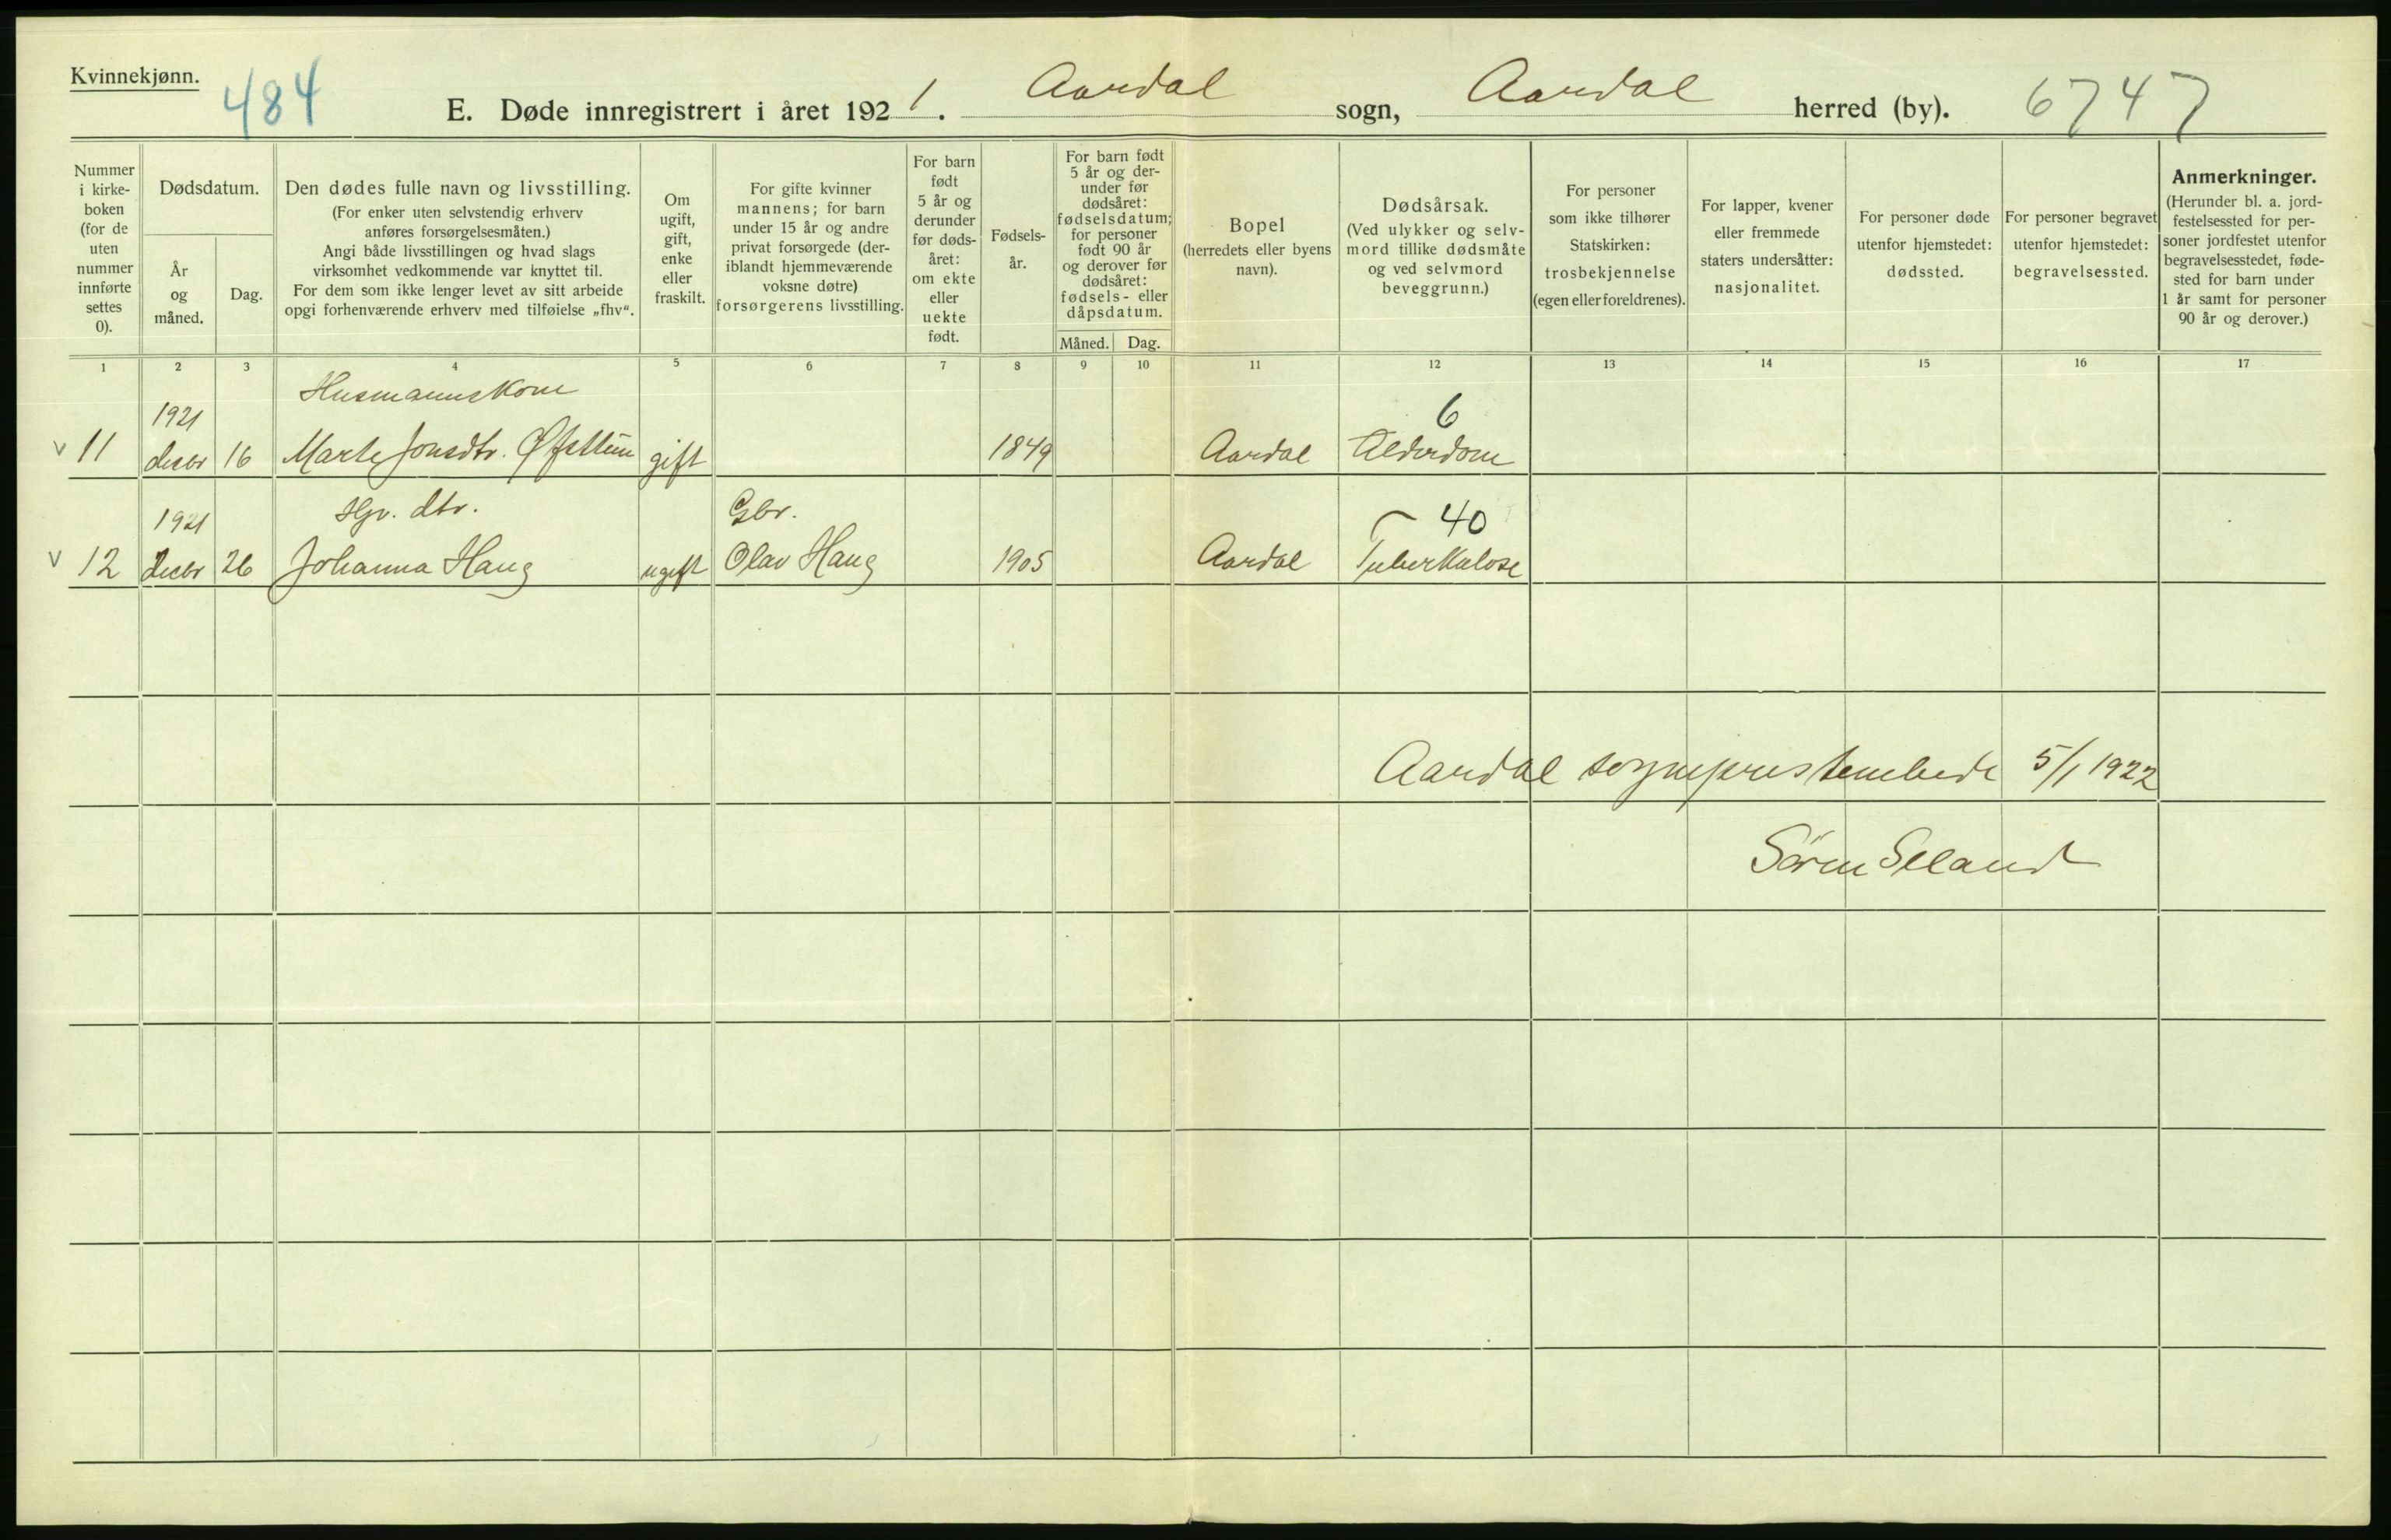 Kvinnekjønn.
484
E. Døde innregistrert i året 1921. Aardal sogn, Aardal herred (by). 6747
Nummer i kirke- boken (for de uten nummer innførte settes 0).
Dødsdatum.
År og måned.
Dag.
Den dødes fulle navn og livsstilling.
(For enker uten selvstendig erhverv
anføres forsørgelsesmåten.)
Angi både livsstillingen og hvad slags
virksomhet vedkommende var knyttet til.
For dem som ikke lenger levet av sitt arbeide
opgi forhenværende erhverv med tilføielse „fhv“.
Om ugift, gift, enke eller fraskilt.
For gifte kvinner
mannens; for barn
under 15 år og andre
privat forsørgede (der-
iblandt hjemmeværende
voksne døtre)
forsørgerens livsstilling.
For barn født 5 år og derunder før døds- året: om ekte eller uekte født.
Fødsels- år.
For barn født
5 år og der-
under før
dødsåret:
fødselsdatum;
for personer
født 90 år
og derover før
dødsåret:
fødsels- eller
dåpsdatum.
Måned. Dag.
Bopel
(herredets eller byens
navn).
Dødsårsak.
(Ved ulykker og selv-
mord tillike dødsmåte
og ved selvmord
beveggrunn.)
For personer
som ikke tilhører
Statskirken:
trosbekjennelse
(egen eller foreldrenes).
For lapper, kvener
eller fremmede
staters undersåtter:
nasjonalitet.
For personer døde
utenfor hjemstedet:
dødssted.
For personer begravet
utenfor hjemstedet:
begravelsessted.
Anmerkninger.
(Herunder bl. a. jord-
festelsessted for per-
soner jordfestet utenfor
begravelsesstedet, føde-
sted for barn under
1 år samt for personer
90 år og derover.)
1 2 3 4 5 6 7 8 9 10 11 12 13 14 15 16 17
Husmannskone
1921 6
v 11 decbr 16 Marte Jonsdtr. gift 1849 Aardal Alderdom
1921 Hjv. dtr. Gbr. 40
v 12 decbr 26 Johanna Haug ugift Olav Haug 1905 Aardal Tuberkulose
Aardal sogneprestembede 5/1 1922
Søren Seland